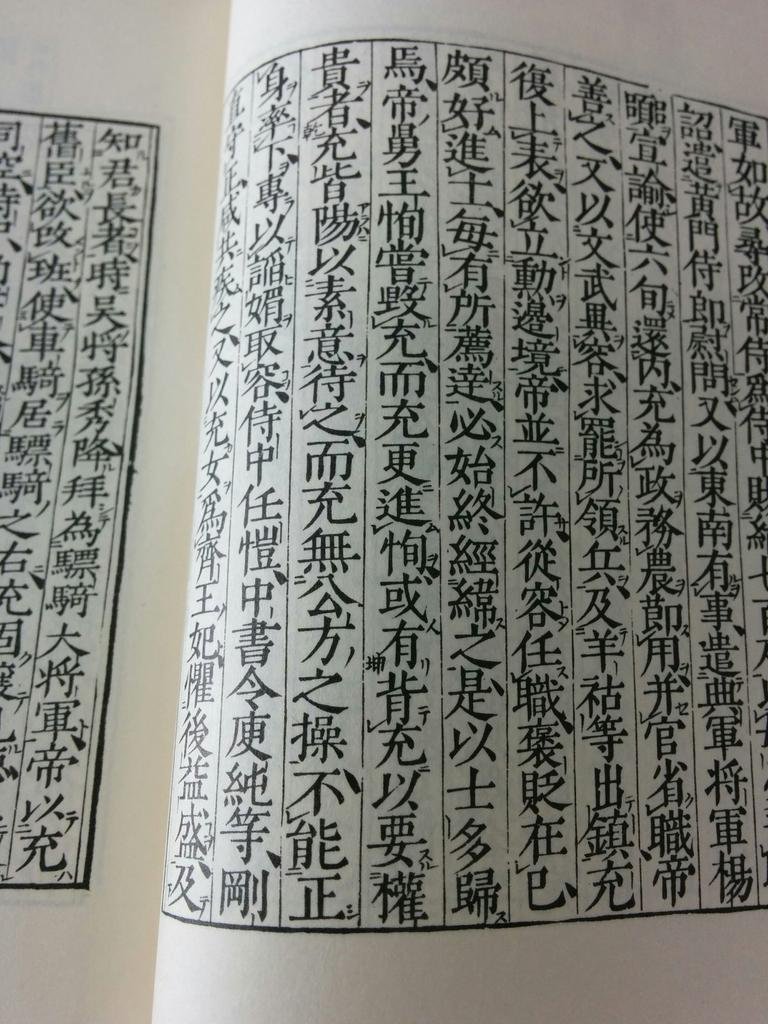 軍如故尋改常侍爲侍中賜絹七百
詔遣黃門侍郎慰問又以東南有事遣典軍將軍楊
囂宣諭使六旬還内充為政務農節用并官省職帝
善之又以文武異容求罷所領兵及羊祜等出鎮充
復上表欲立動邊境帝並不許從容任職褒貶在己
頗好進士每有所薦達必始終經緯之是以士多歸
焉帝舅王恂嘗毀充而充更進恂或有背充以要權
貴者充皆陽以素意待之而充無公方之操不能正
身率下專以謟媚取容侍中任愷中書令庾純等剛
直守正咸共疾之又以充女爲齊王妃懼後益盛及
知君長者時吴將孫秀降拜為驃騎大將軍帝以充
舊臣欲改班使車騎居驃騎之右充固讓見
司空侍中